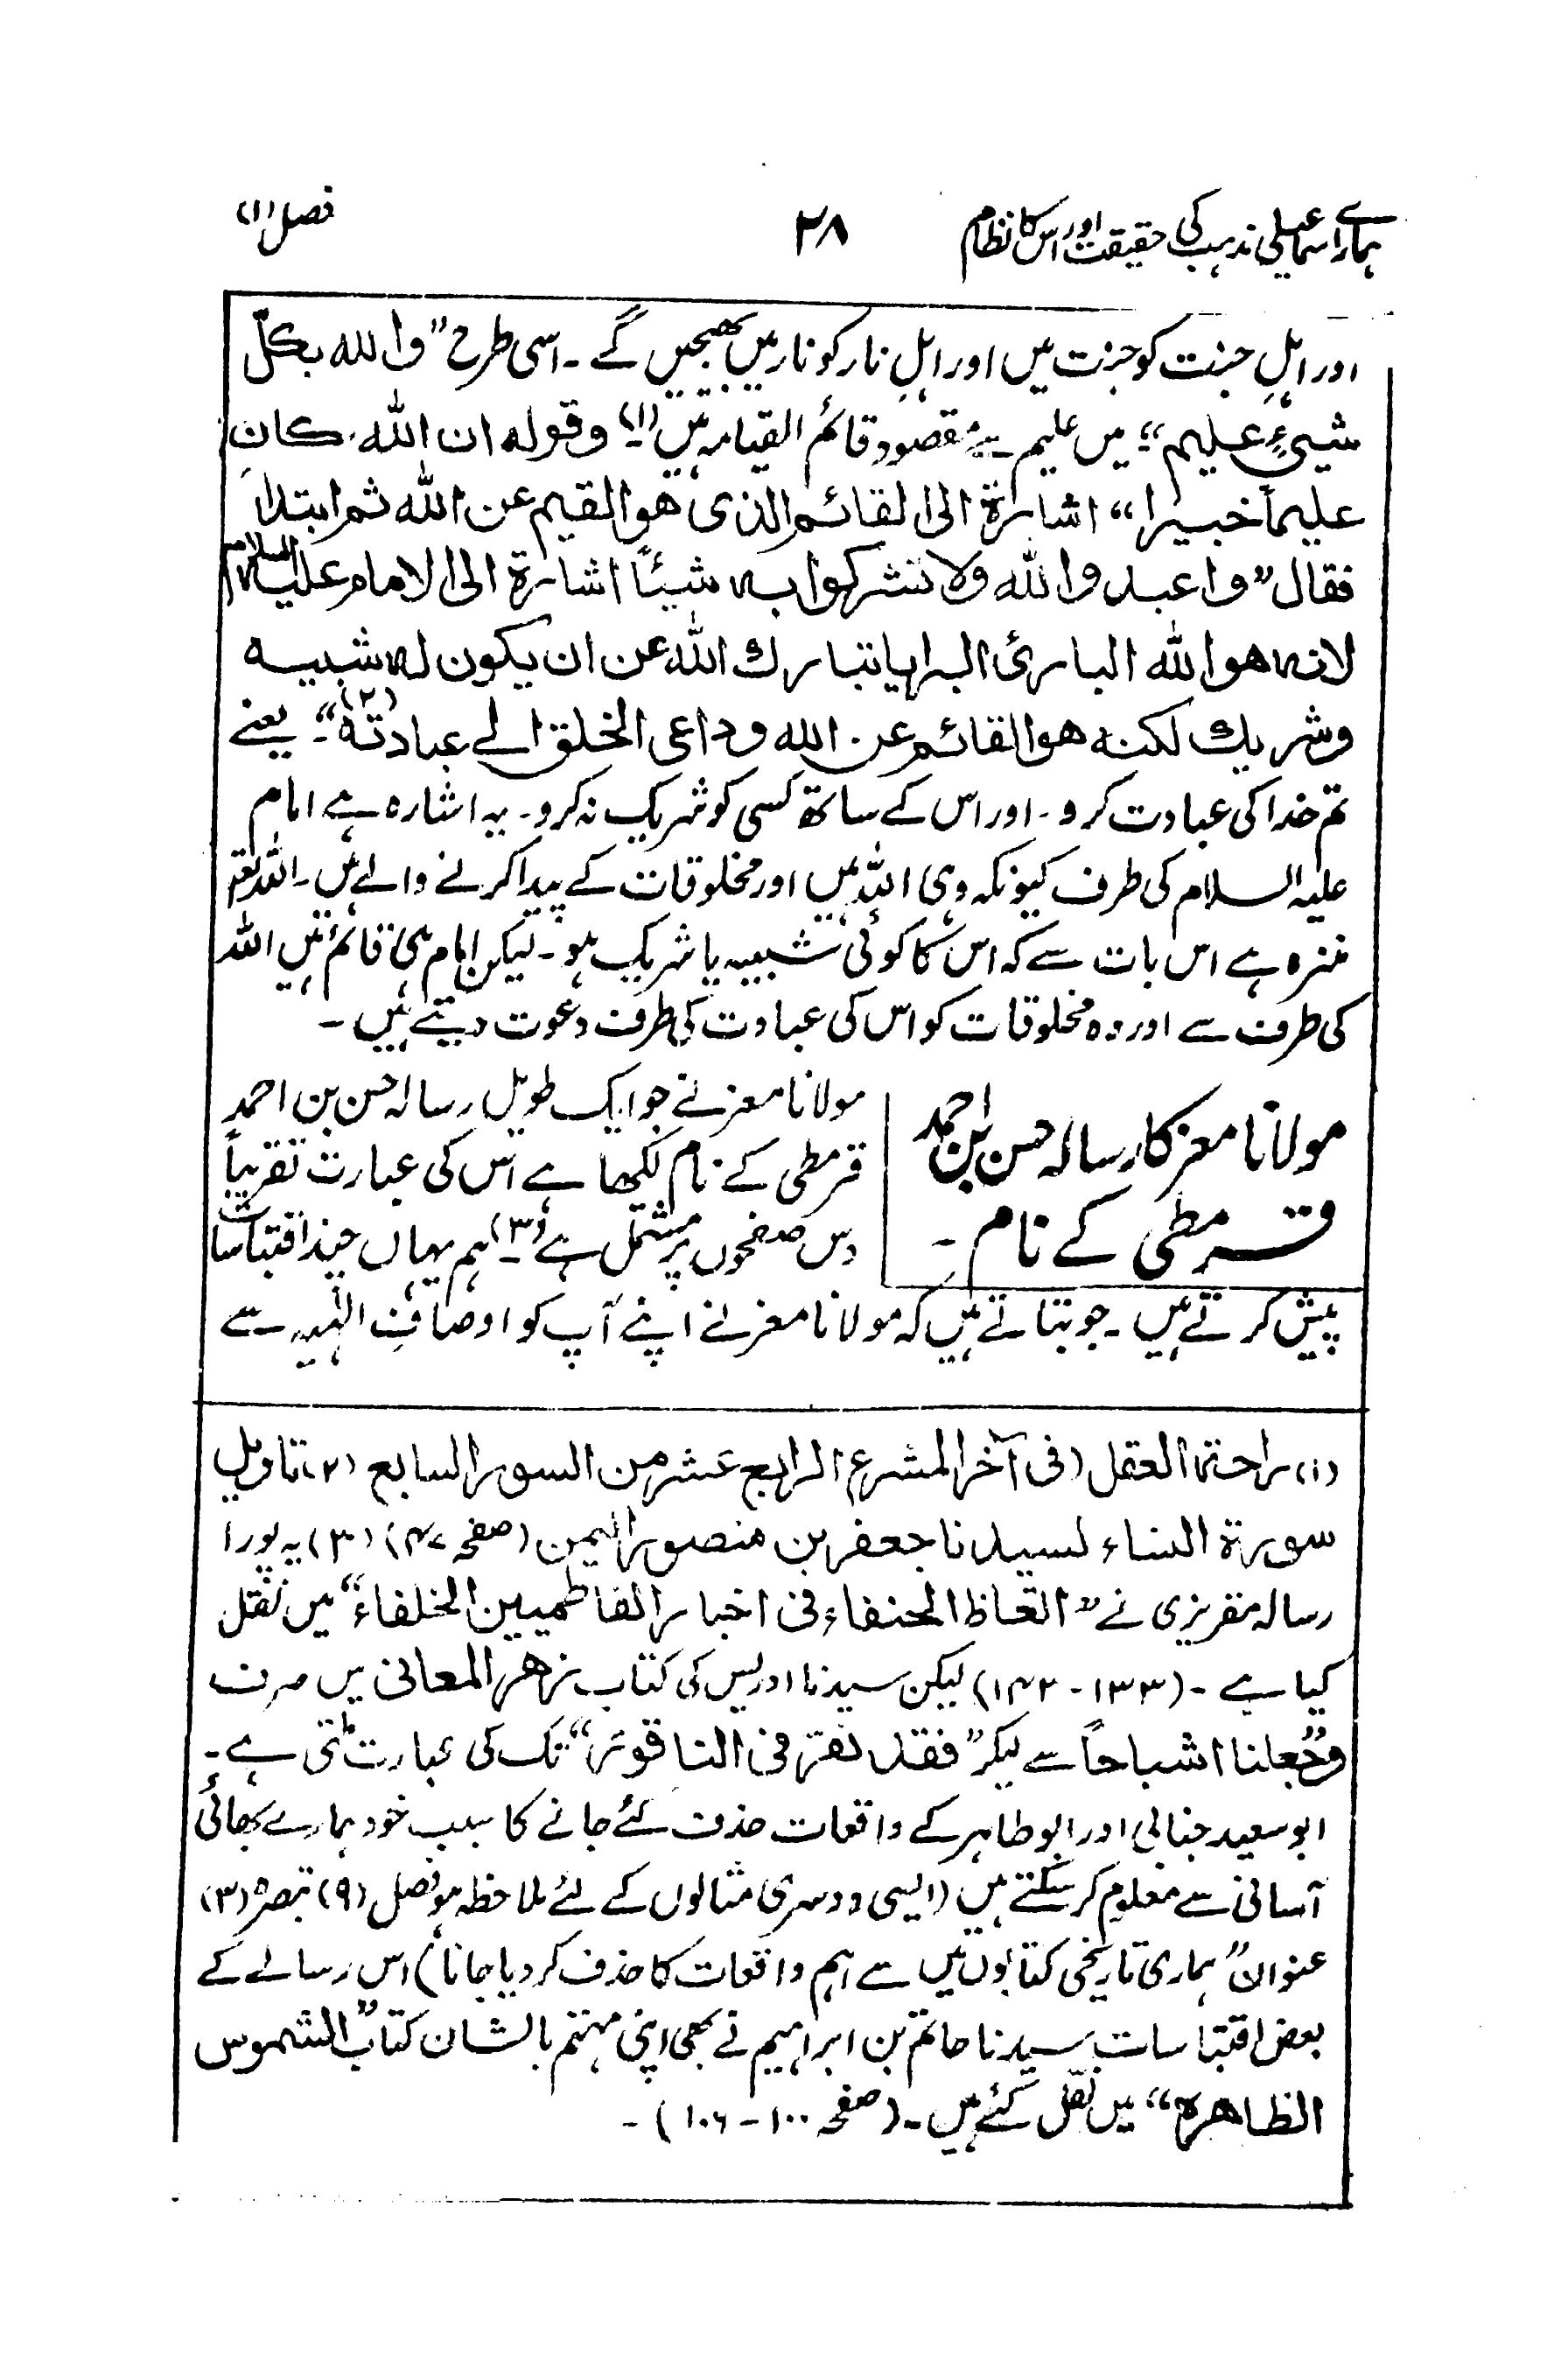 ہمارے اسماعیلی مذہب کی حقیقت اور اس کا نظام
۲۸
فصل (۱)
اور اہلِ جنت کو جنت میں اور اہلِ نار کو نار میں بھیجیں گے ۔ اسی طرح ”واللہ بکلّ
شیئٍ علیم“ میں علیم سے مقصود قائم القیامہ ہیں (۱)۔ وقولہ ان اللہ کان
علیماً خبیرا“ اشارۃ الی القائم الذی ھو القیم عن اللہ ثم ابتدأ
فقال ”واعبدواللہ ولا تشرکوا بہ شیئاً اشارۃ الی الامام علیہ السلام
لانہ ھو اللہ الباریٔ البرایا تبارك اللہ عن ان یکون لہ شبیہ
وشریك لکنہ ھو القائم عن اللہ وداعی الخلق الے عبادتہ (۲)“۔ یعنے
تم خدا کی عبادت کرو ۔ اور اس کے ساتھ کسی کو شریک نہ کرو ۔ یہ اشارہ ہے امام
علیہ السلام کی طرف کیونکہ وہی اللہ ہیں اور مخلوقات کے پیدا کرنے والے ہیں ۔ اللہ تعہ
منزہ ہے اس بات سے کہ اس کا کوئی شبیہ یا شریک ہو ۔ لیکن امام ہی قائم ہیں اللہ
کی طرف سے اور وہ مخلوقات کو اس کی عبادت کی طرف دعوت دیتے ہیں ۔
مولانا معز کا رسالہ حسن بن احمد
قرمطی کے نام ۔
مولانا معز نے جو ایک طویل رسالہ حسن بن احمد
قرمطی کے نام لکھا ہے اُس کی عبارت تقریباً
دس صفحوں پر مشتمل ہے (۳)۔ ہم یہاں چند اقتباسات
پیش کرتے ہیں ۔ جو بتاتے ہیں کہ مولانا معز نے اپنے آپ کو اوصافِ الٰہیہ سے
(۱) راحۃ العقل (فی آخر المشرع الرابع عشر من السور السابع (۲) تاویل
سورۃ النساء لسیدنا جعفر بن منصور الیمن (صفحہ ۴۷) (۳) یہ پورا
رسالہ مقریزی نے ”اتعاظ الحنفاء فی اخبار الفاطمیین الخلفاء“ میں نقل
کیا ہے ۔ (۱۳۳ - ۱۴۲) لیکن سیدنا ادریس کی کتاب زھر المعانی میں صرف
”وجعلنا اشباحاً سے لیکر ”فقد نقر فی الناقور“ تک کی عبارت ملتی ہے ۔
ابو سعید جنابی اور ابو طاہر کے واقعات حذف کئے جانے کا سبب خود ہمارے بھائی
آسانی سے معلوم کر سکتے ہیں (ایسی دوسری مثالوں کے لئے ملاحظہ ہو فصل (۹) تبصرہ (۳)
عنوان ”ہماری تاریخی کتابوں میں سے اہم واقعات کا حذف کر دیا جانا“) اس رسالے کے
بعض اقتباسات سیدنا حاتم بن ابراہیم نے بھی اپنی مہتم بالشان کتاب ”الشموس
الظاھرۃ“ میں نقل کئے ہیں ۔ (صفحہ ۱۰۰ - ۱۰۶) ۔